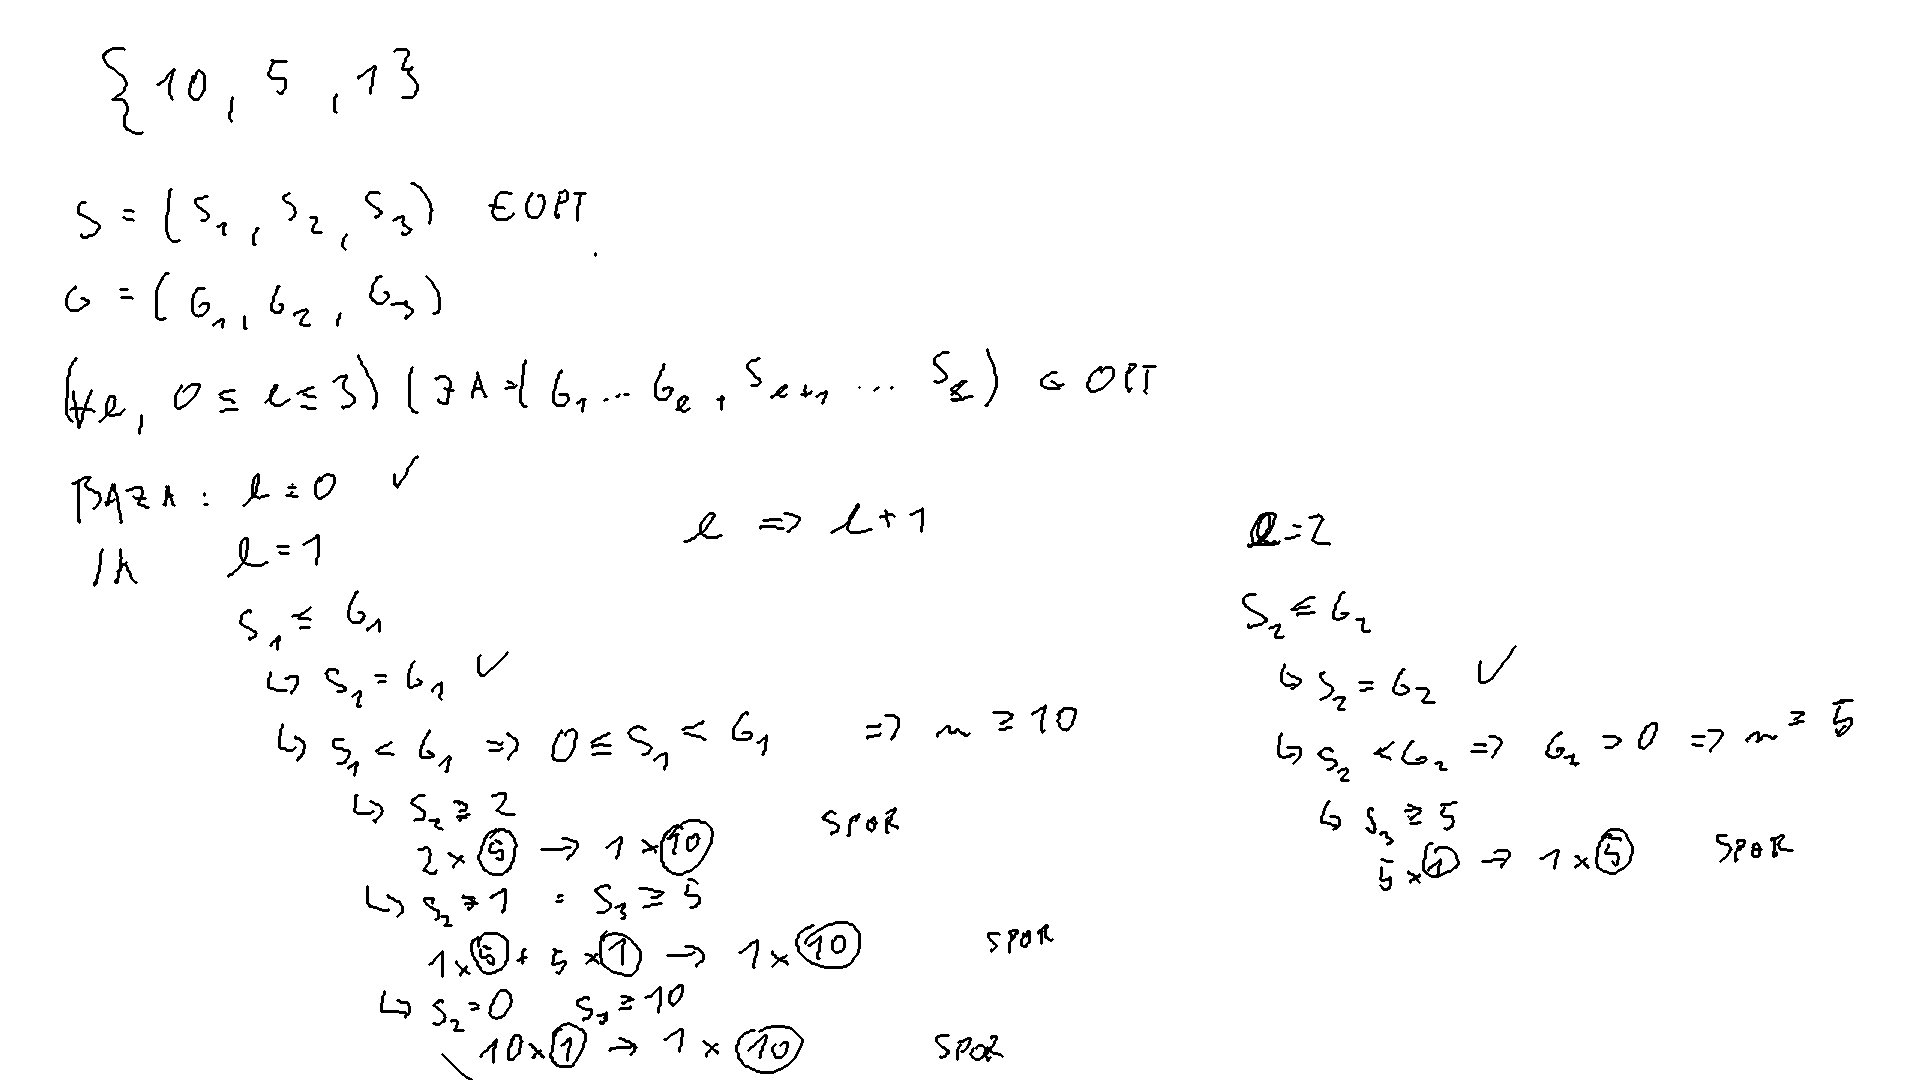 {10, 5, 1}
S = (S₁, S₂, S₃) ∈ OPT
G = (G₁, G₂, G₃)
(∀l, 0 ≤ l ≤ 3) (∃ A = (G₁ ... Gₗ, Sₗ₊₁ ... S₃) ∈ OPT
BAZA : l = 0 ✓
l => l + 1
l = 1
S₁ ≤ G₁
↳ S₁ = G₁ ✓
↳ S₁ < G₁ => 0 ≤ S₁ < G₁ => n ≥ 10
↳ S₂ ≥ 2
2 × ⑤ → 1 × ⑩ SPOR
↳ S₂ = 1 : S₃ ≥ 5
1 × ⑤ + 5 × ① → 1 × ⑩ SPOR
↳ S₂ = 0 S₃ ≥ 10
10 × ① → 1 × ⑩ SPOR
l = 2
S₂ ≤ G₂
↳ S₂ = G₂ ✓
↳ S₂ < G₂ => G₂ > 0 => n ≥ 5
↳ S₃ ≥ 5
5 × ① → 1 × ⑤ SPOR